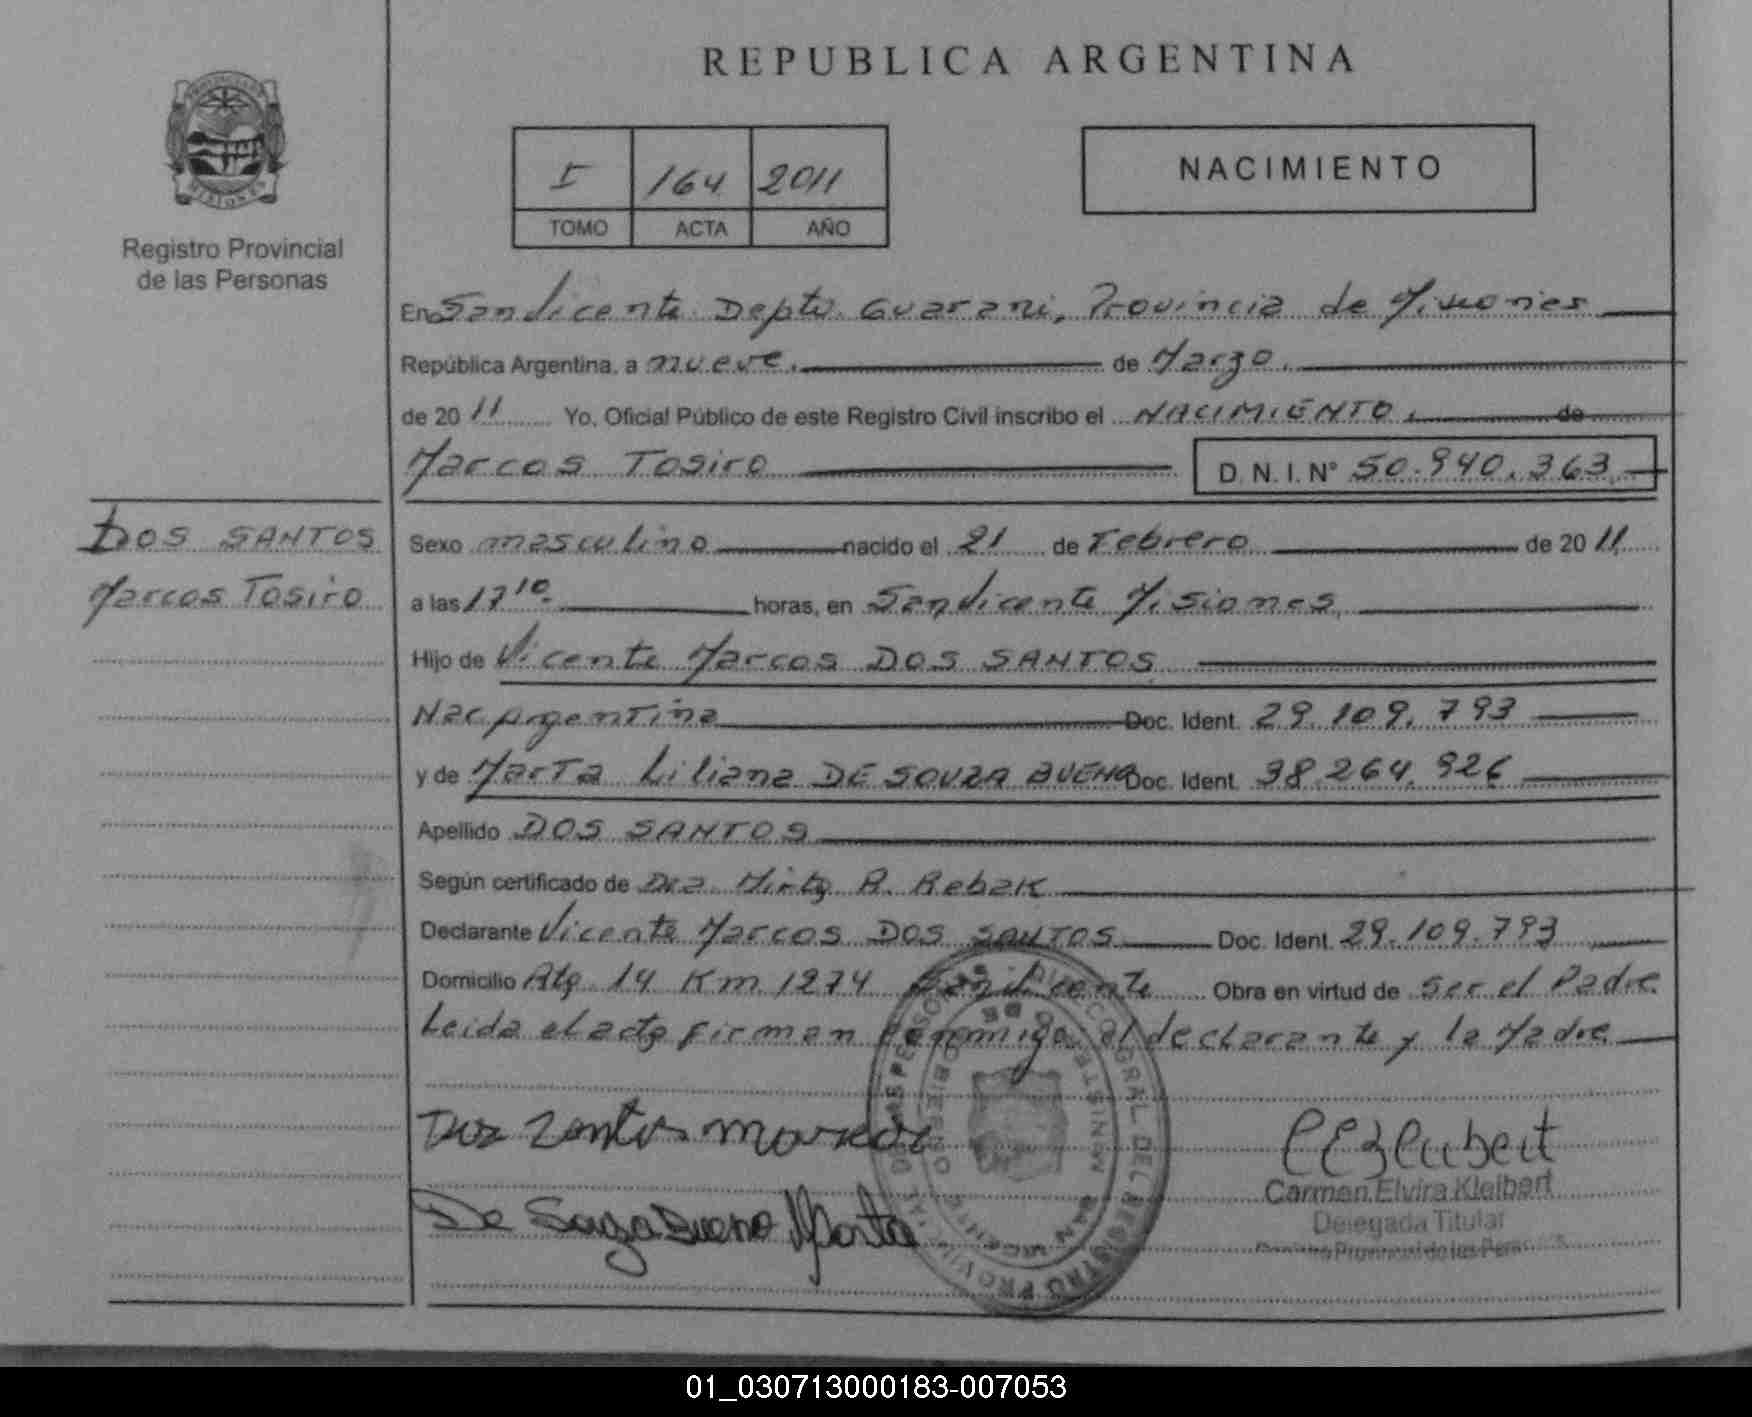 REPUBLICA ARGENTINA
PROVINCIA DE
MISIONES
Registro Provincial
de las Personas
I 164 2011
TOMO ACTA AÑO
NACIMIENTO
En San Vicente Depto. Guarani, Provincia de Misiones
República Argentina, a nueve. de Marzo.
de 2011 Yo, Oficial Público de este Registro Civil inscribo el NACIMIENTO. de
Marcos Tosiro D.N.I. N° 50.940.363.
DOS SANTOS
Marcos Tosiro
Sexo masculino nacido el 21 de Febrero de 2011.
a las 17 10. horas, en San Vicente Misiones,
Hijo de Vicente Marcos DOS SANTOS
Nac Argentina Doc. Ident. 29.109.793
y de Marta Liliana DE SOUZA BUENO Doc. Ident. 38.264.926
Apellido DOS SANTOS
Según certificado de Dra Mirta R. Rebak
Declarante Vicente Marcos DOS SANTOS Doc. Ident. 29.109.793
Domicilio Km 1274 San Vicente Obra en virtud de ser el Padre
Leida el acta firman conmigo el declarante y la Madre
Dos Santos
De Souza Bueno Marta
Carmen Elvira Kleibert
Delegada Titular
Registro Provincial de las Personas
DIRECCION GRAL. DEL REGISTRO PROVINCIAL DE LAS PERSONAS
MINISTERIO DE GOBIERNO
SAN VICENTE
01_030713000183-007053